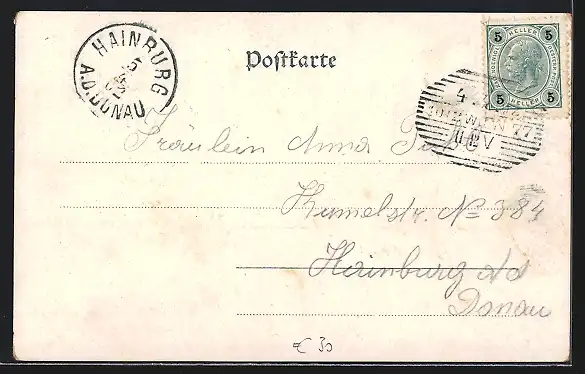 HAINBURG
A.D. DONAU
Postkarte
5 HELLER 5
5 HELLER 5
WIEN 77
Fräulein Anna
Hummelstr. No 384
Hainburg a/d
Donau
€ 30